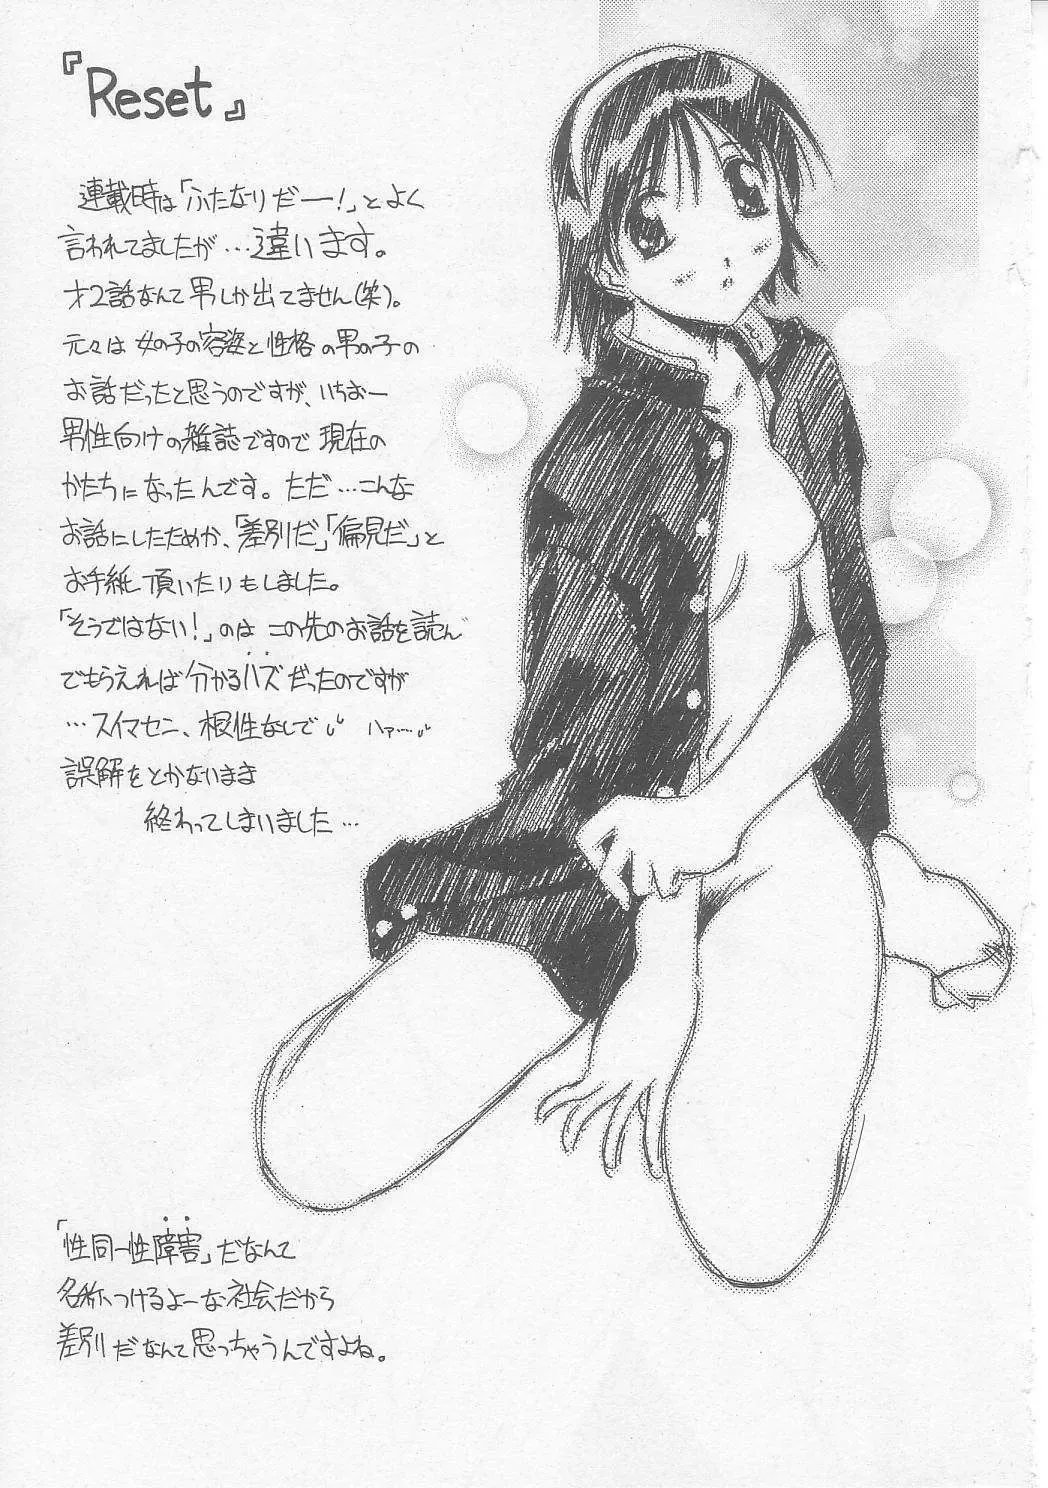 『Reset』
連載時は「ふたなりだー!」とよく
言われてましたが…違います。
才2話なんて男しか出てません(笑)。
元々は女の子の容姿と性格の男の子の
お話だったと思うのですが、いちおー
男性向けの雑誌ですので現在の
かたちになったんです。ただ…こんな
お話にしたためか、「差別だ」「偏見だ」と
お手紙頂いたりもしました。
「そうではない!」のはこの先のお話を読ん
でもらえれば分かるハズだったのですが
…スイマセン、根性なしで ハァ……
誤解をとかないまま
終わってしまいました…
「性同一性障害」だなんて
名称、つけるよーな社会だから
差別だなんて思っちゃうんですよね。